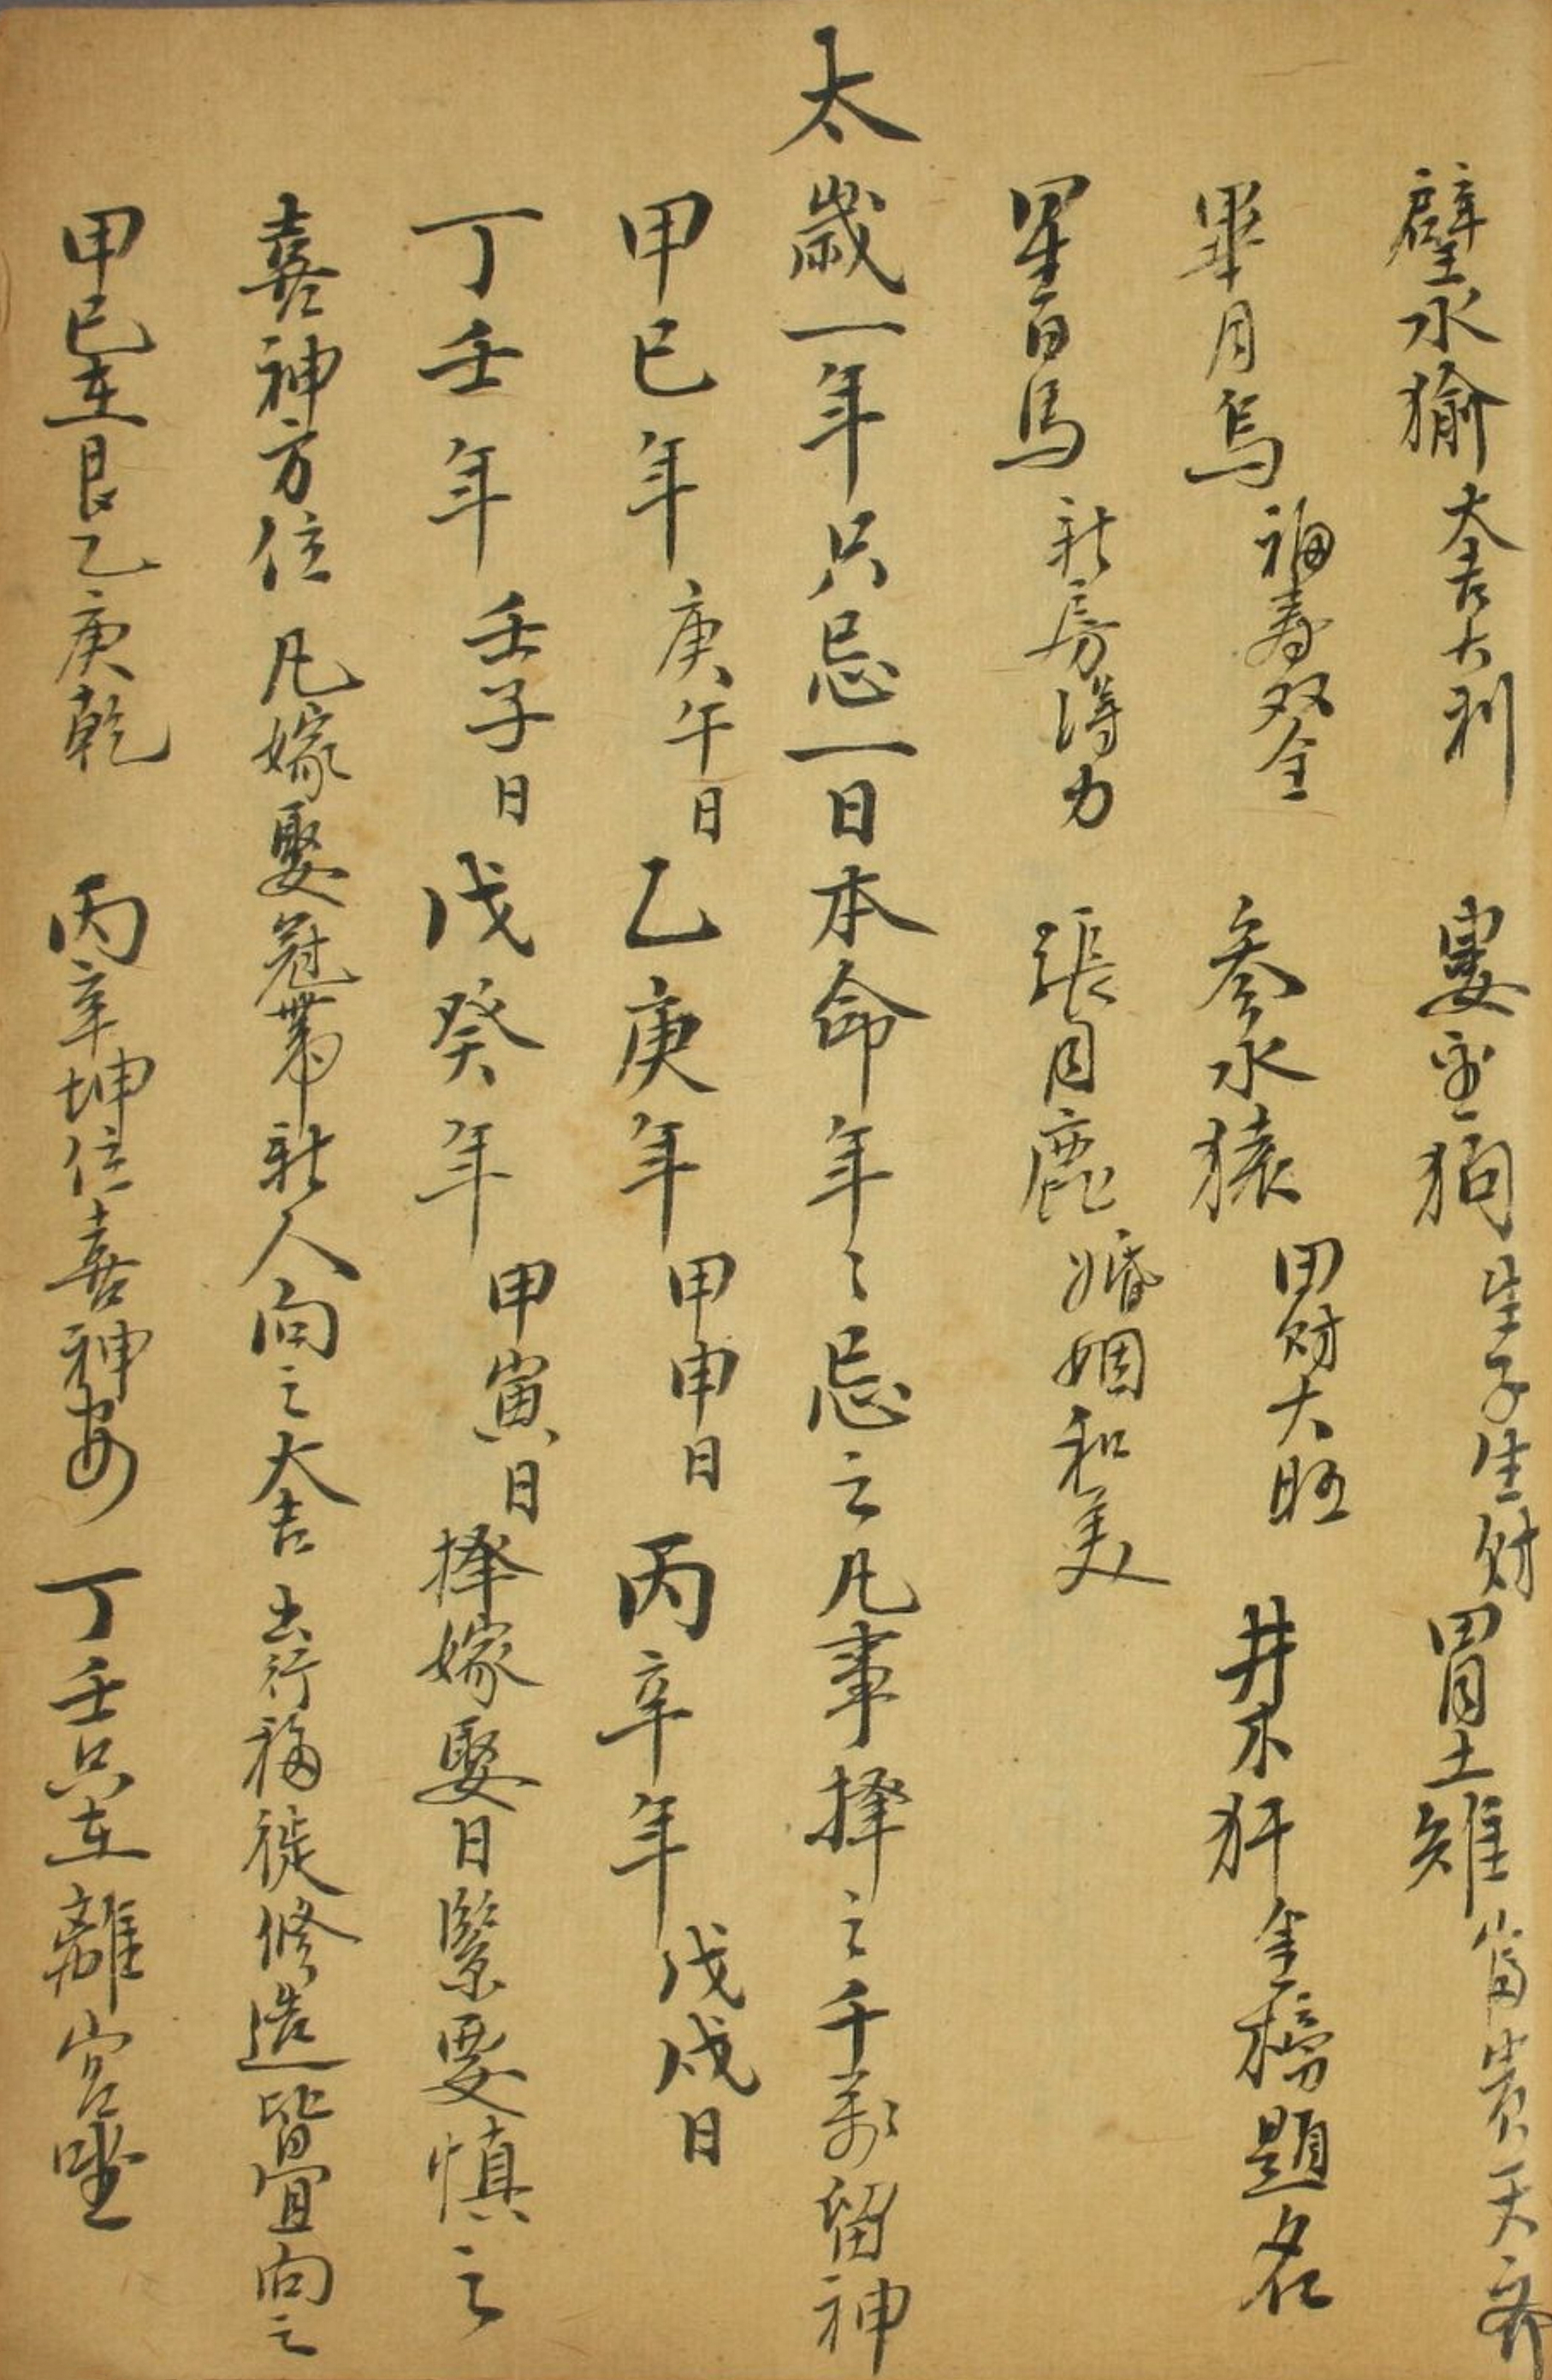 壁水㺄 大吉大利 婁金狗 生子生财 胃土雉 富贵天齐
畢月烏 福寿双全 参水猿 田财大旺 井木犴 金榜题名
星日馬 新房得力 張月鹿 婚姻和美
太歲一年只忌一日本命年〻忌之凡事择之千萬留神
甲己年 庚午日 乙庚年 甲申日 丙辛年 戊戌日
丁壬年 壬子日 戊癸年 甲寅日 择嫁娶日緊要慎之
喜神方位 凡嫁娶冠带新人向之大吉 出行移徙修造皆宜向之
甲己在艮乙庚乾 丙辛坤位喜神安 丁壬只在離宮坐